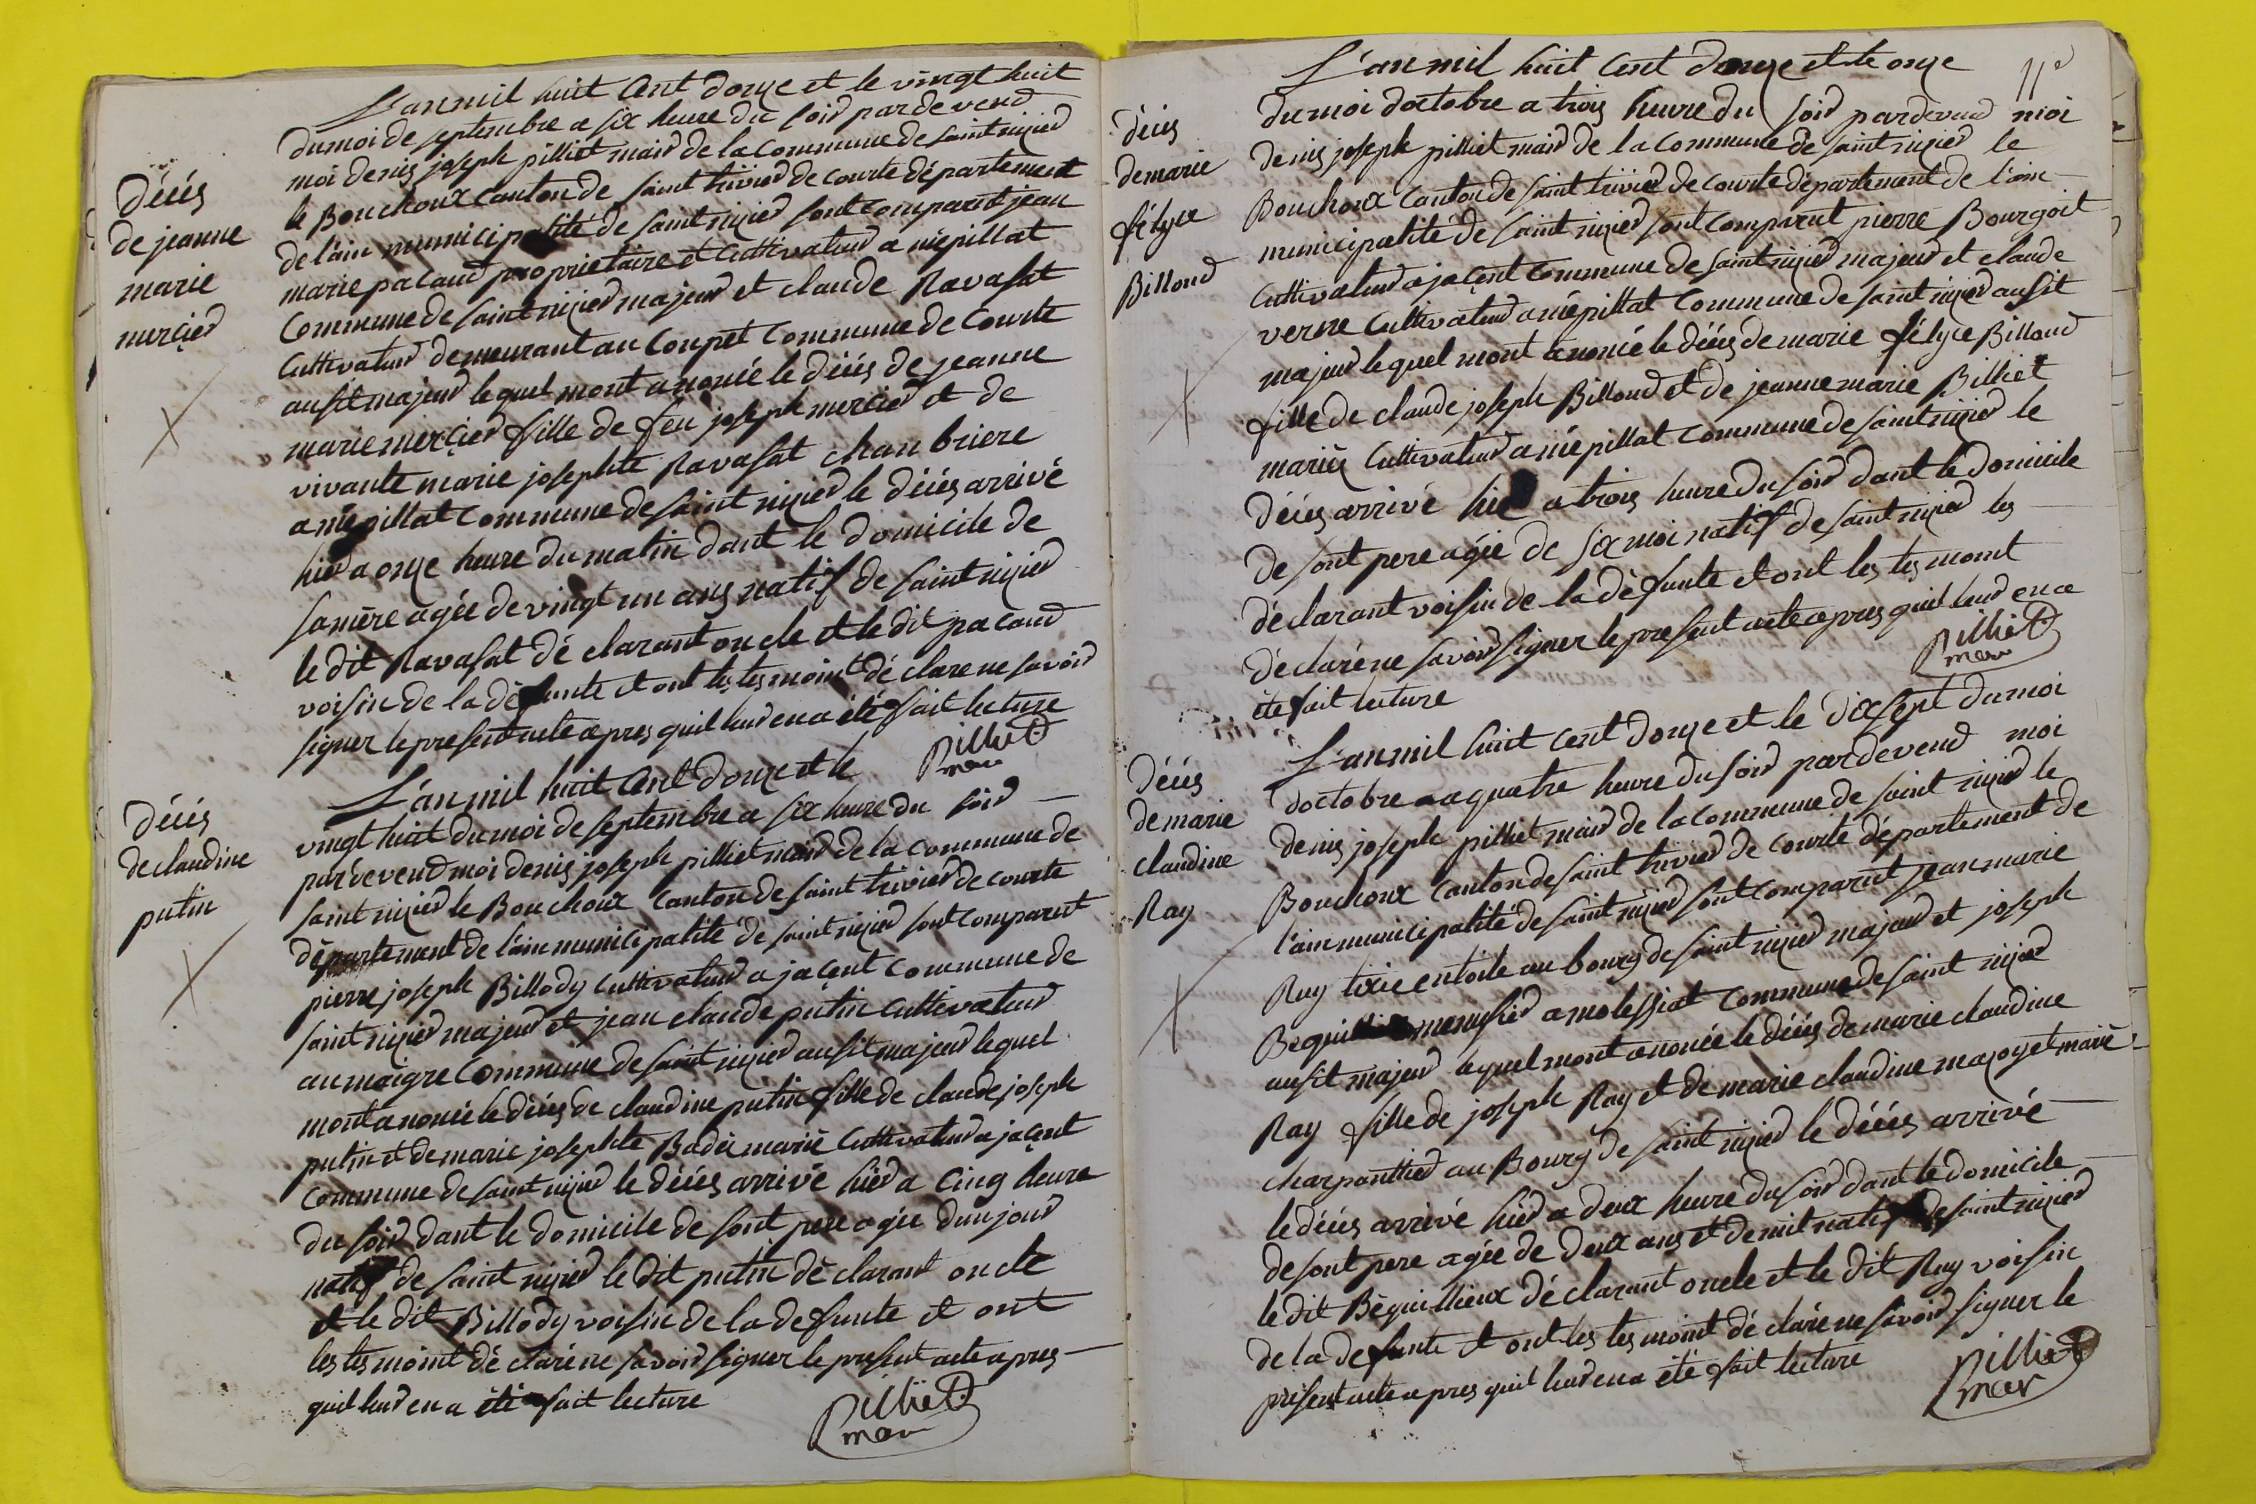 L'an mil huit Cent douze et le vingt huit
du moi de septembre a six heure du soir par devend
moi denis joseph pilliet mair de la Commune de saint nizier
le Bouchoux Canton de saint trivier de Courte département
de l'ain municipalité de saint nizier sont comparut jean
marie pacaud proprietaire et Cultivateur a niépillat
Commune de saint nizier majeur et claude Ravasat
Cultivateur demeurant au Coupet Commune de Courte
ausit majeur lequel mont anoncé le décés de jeanne
marie mercier fille de feu joseph mercier et de
vivante marie josephte Ravasat chanbriere
a niépillat Commune de saint nizier le décés arrivé
hier a onze heure du matin dant le domicile de
samère agée de vingt un ans natif de saint nizier
le dit Ravasat déclarant oncle et le dit pacaud
voisin de la défunte et ont les tesmoint déclare ne savoir
signer le present acte apres quil leur en a été fait lecture
pilliet
mair
décés
de jeanne
marie
mercier
L'an mil huit Cent douze et le
vingt huit du moi de septembre a six heure du soir
par devend moi denis joseph pilliet mair de la Commune de
saint nizier le Bouchoux Canton de saint trivier de courte
département de l'ain municipalité de saint nizier sont comparut
pierre joseph Billody Cultivateur a jaçent Commune de
saint nizier majeur et jean claude putin Cultivateur
au maigre Commune de saint nizier ausit majeur lequel
mont anoncé le décés de claudine putin fille de claude joseph
putin et de marie josephte Badei marié Cultivateur a jaçent
Commune de saint nizier le décés arrivé hier a Cinq heure
du soir dant le domicile de sont pere agée dun jour
natif de saint nizier le dit putin déclarant oncle
et le dit Billody voisin de la defunte et ont
les tesmoint déclaré ne savoir signer le present acte apres
quil leur en a été fait lecture
pilliet
mair
décés
de claudine
putin
11e
L'an mil huit Cent douze et le onze
du moi doctobre a trois heure du soir par devend moi
denis joseph pilliet mair de la Commune de saint nizier le
Bouchoux Canton de saint trivier de Courte département de l'ain
municipalité de saint nizier sont comparut pierre Bourgoit
Cultivateur a jaçent Commune de saint nizier majeur et claude
verne Cultivateur a niépillat Commune de saint nizier ausit
majeur lequel mont anoncé le décés de marie félyce Billoud
fille de claude joseph Billoud et de jeanne marie Billiet
mariés Cultivateur a niépillat Commune de saint nizier le
décés arrivé hier a trois heure du soir dant le domicile
de sont pere agée de six moi natif de saint nizier les
déclarant voisin de la défunte et ont les tesmoint
déclaré ne savoir signer le present acte apres quil leur en a
été fait lecture
pilliet
mair
décés
de marie
félyce
Billoud
L'an mil huit Cent douze et le dix sept du moi
doctobre a quatre heure du soir par devend moi
denis joseph pilliet mair de la Commune de saint nizier le
Bouchoux Canton de saint trivier de Courte département de
l'ain municipalité de saint nizier sont comparut jean marie
Ray tixie en toile au bourg de saint nizier majeur et joseph
menusier a molessiat Commune de saint nizier
ausit majeur lequel mont anoncé le décés de marie claudine
Ray fille de joseph Ray et de marie claudine mazoyet marié
charpanttier au Bourg de saint nizier le décés arrivé
le décés arrivé hier a deux heure du soir dant le domicile
de sont pere agée de deux ans et demit natif de saint nizier
le dit Bèquillieux déclarant oncle et le dit Ray voisin
de la defunte et ont les tesmoint déclaré ne savoir signer le
présent acte apres quil leur en a été fait lecture
pilliet
mair
décés
de marie
claudine
Ray